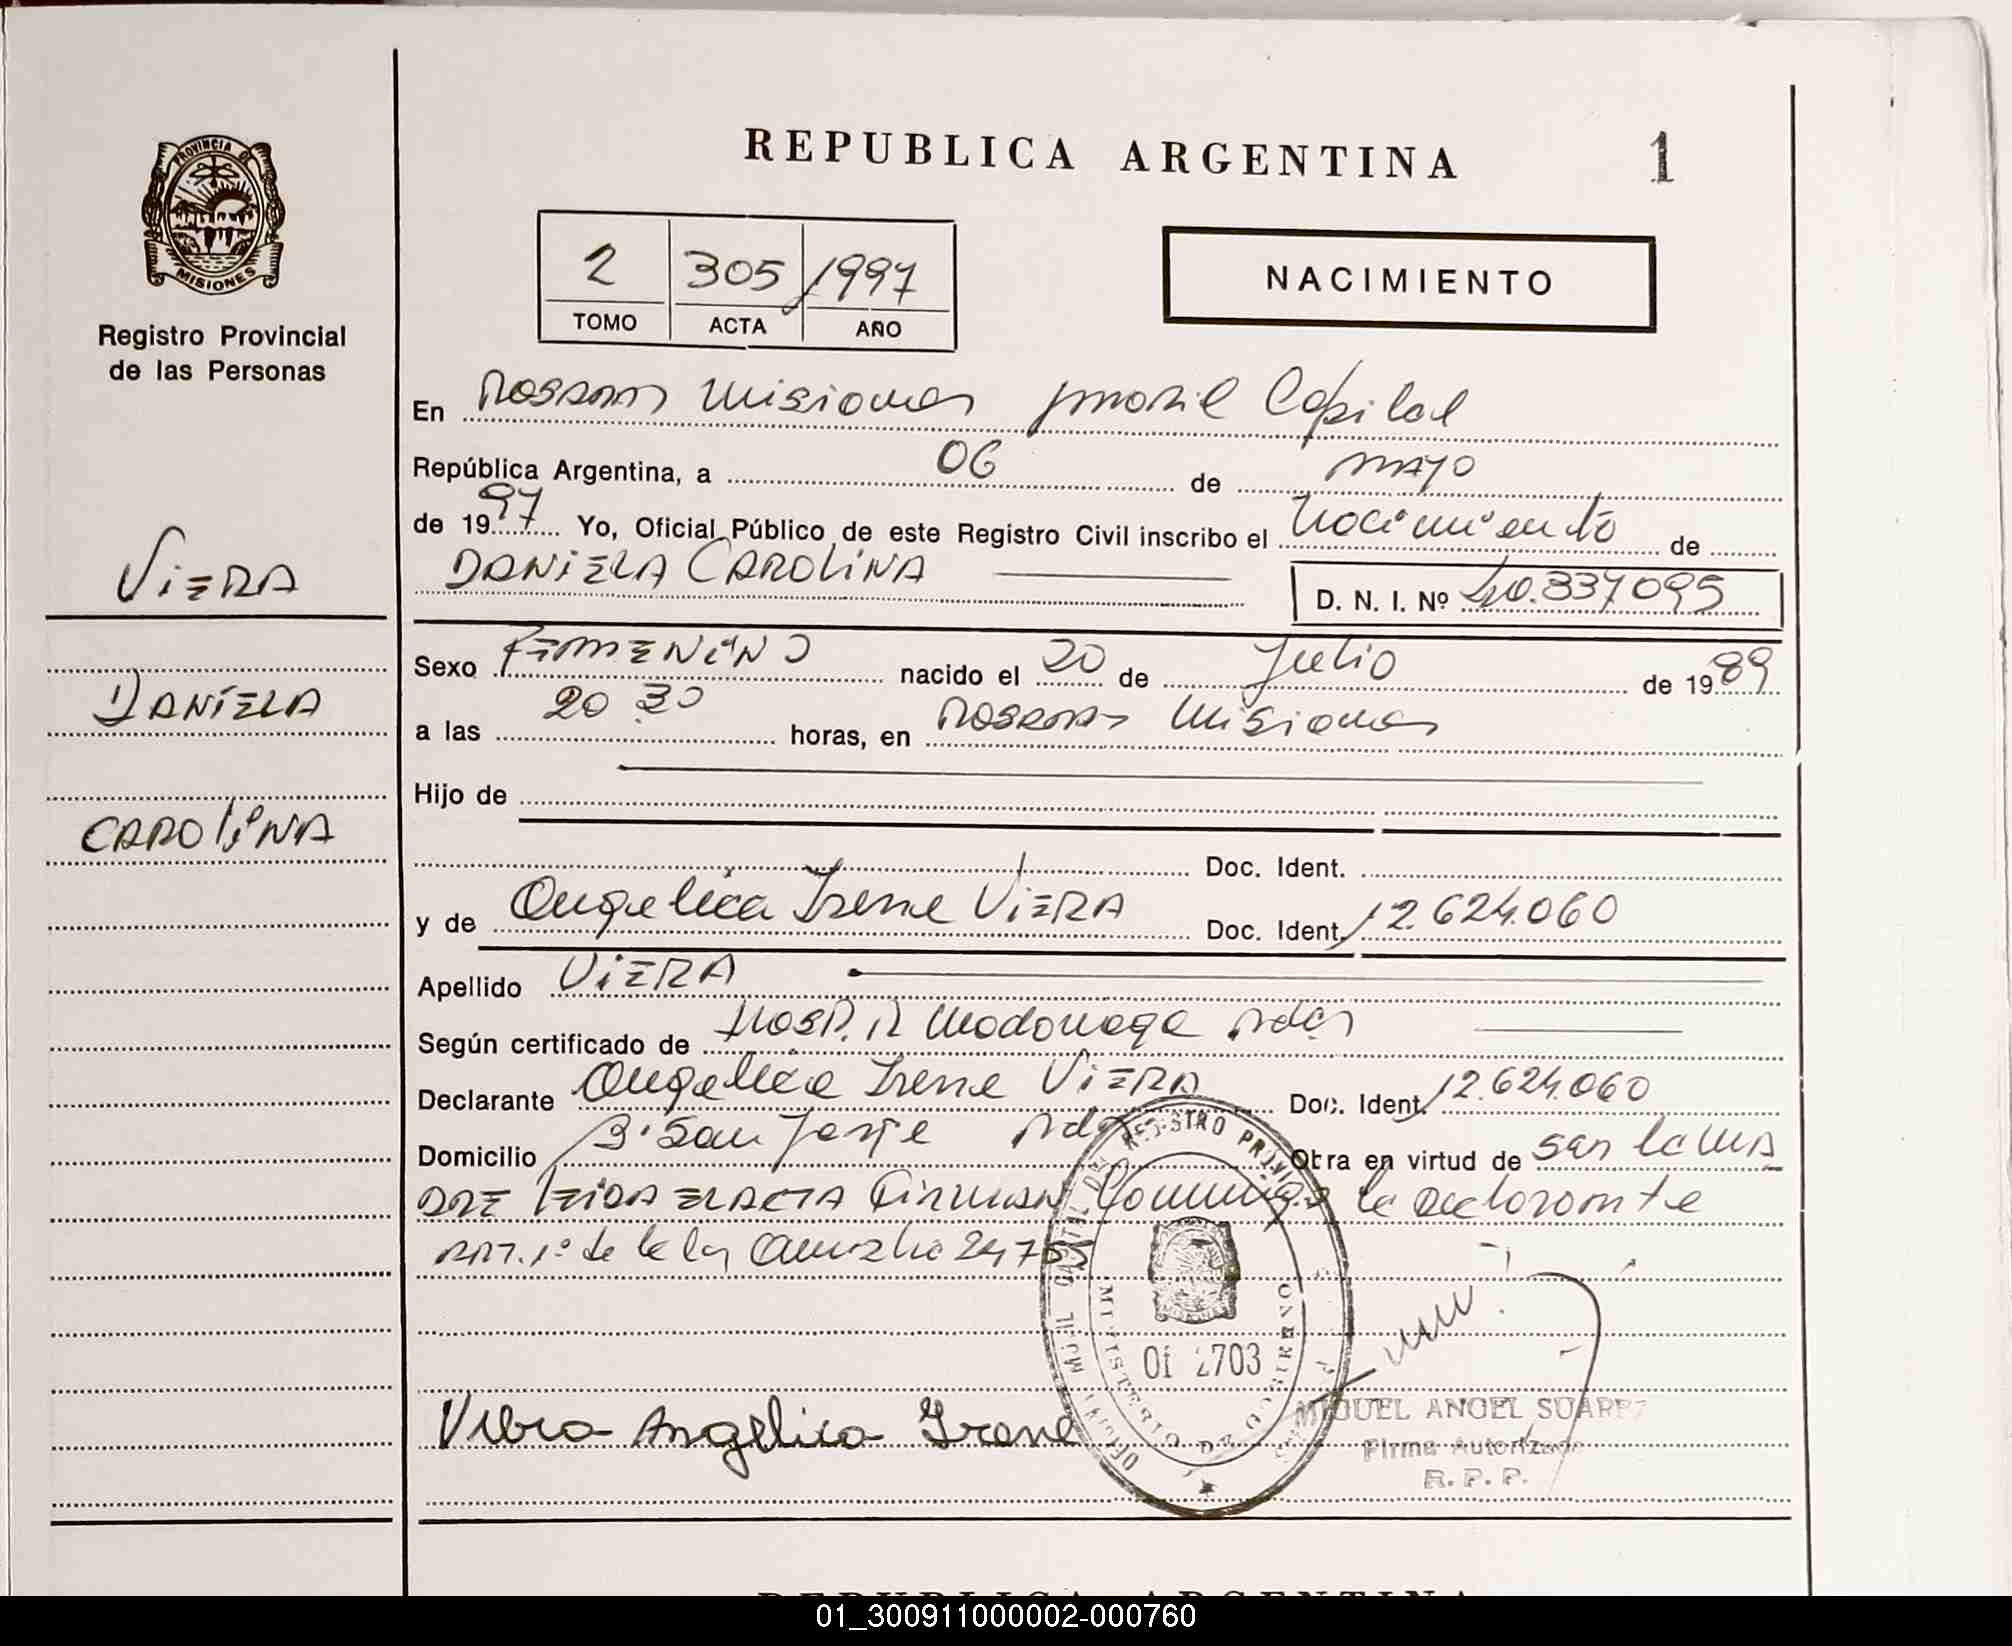 REPUBLICA ARGENTINA 1
PROVINCIA DE
MISIONES
Registro Provincial
de las Personas
2 305 1997
TOMO ACTA AÑO
NACIMIENTO
En Posadas Misiones Capital
República Argentina, a 06 de mayo
de 1997 Yo, Oficial Público de este Registro Civil inscribo el nacimiento de
DANIELA CAROLINA D. N. I. Nº 40.337095
VIERA
DANIELA
CAROLINA
Sexo FEMENINO nacido el 20 de Julio de 1989
a las 20 30 horas, en Posadas Misiones
Hijo de
Doc. Ident.
y de Angelica Irene VIERA Doc. Ident. 12.624.060
Apellido VIERA
Según certificado de HOSP. R Madariaga Pdas
Declarante Angelica Irene VIERA Doc. Ident. 12.624.060
Domicilio B· San Jorge Pdas Otra en virtud de ser la MA
DRE LEIDA EL ACTA Firman Conmigo la declarante
ART. 1º de la ley 247
REGISTRO
MINISTERIO DE GOBIERNO
Of 2703
Viera Angelica Irene
MIGUEL ANGEL SUAREZ
Firma Autorizada
R. P. P.
REPUBLICA ARGENTINA
01_300911000002-000760